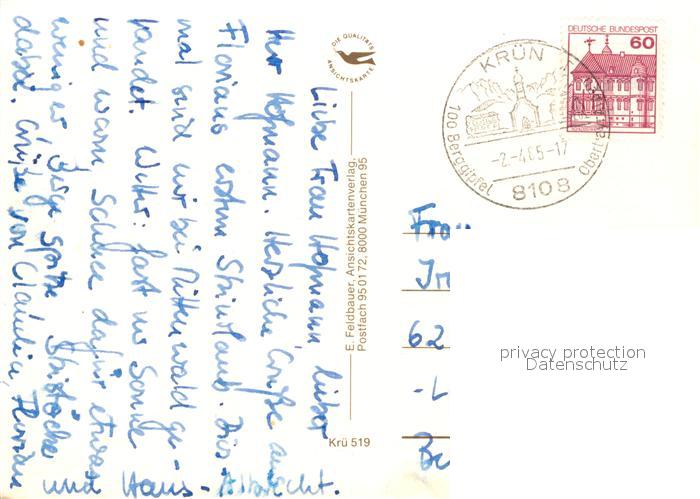 Liebe Frau Hofmann, lieber
Herr Hofmann. Herzliche Grüße aus
Florians erstem Skiurlaub. Dies
mal sind wir bei Mittenwald ge-
landet. Wetter: fast nur Sonne
und warm Schnee dafür etwas
weniger, einige spitze
dabei. Grüße von Claudia, Florian
und Hans-Albrecht.
DIE QUALITÄTS
ANSICHTSKARTE
E. Feldbauer, Ansichtskartenverlag,
Postfach 95 01 72, 8000 München 95
Krü 519
KRÜN
100 Berggipfel
-2.-4.85-17
8108
DEUTSCHE BUNDESPOST
60
62
privacy protection
Datenschutz